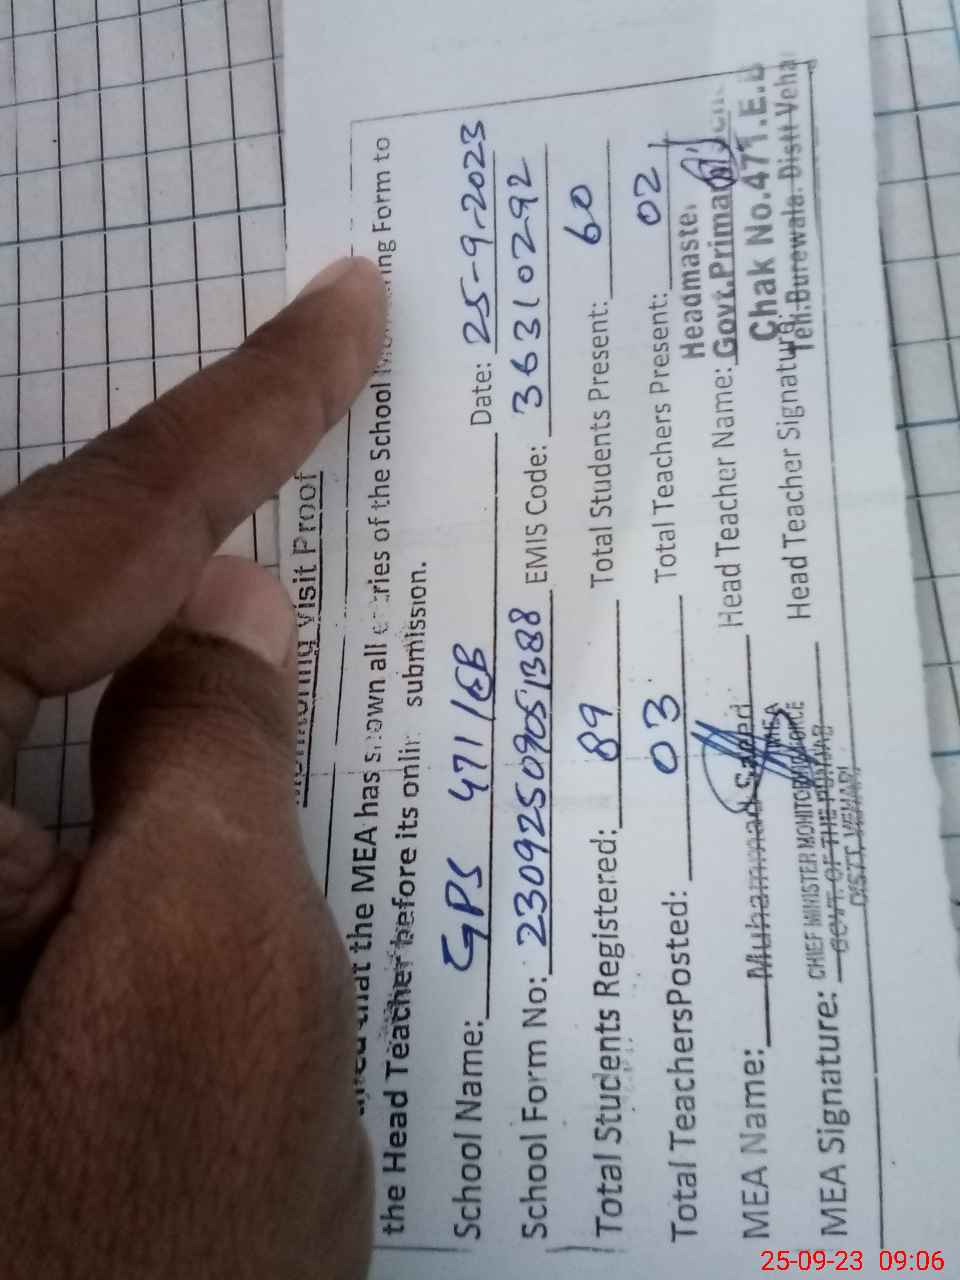 Monitoring Visit Proof
that the MEA has shown all entries of the School Monitoring Form to
the Head Teacher before its online submission.
School Name: GPS 471/EB Date: 25-9-2023
School Form No: 23092509051388 EMIS Code: 36310292
Total Students Registered: 89 Total Students Present: 60
Total TeachersPosted: 03 Total Teachers Present: 02
Headmaster
MEA Name: Muhammad Saeed Head Teacher Name: Govt.Primary
MEA
Chak No.471.E.B
MEA Signature: CHIEF MINISTER MONITORING FORCE Head Teacher Signature:
GOVT. OF THE PUNJAB
Teh:Burewala. Distt Vehari
DISTT. VEHARI
25-09-23 09:06